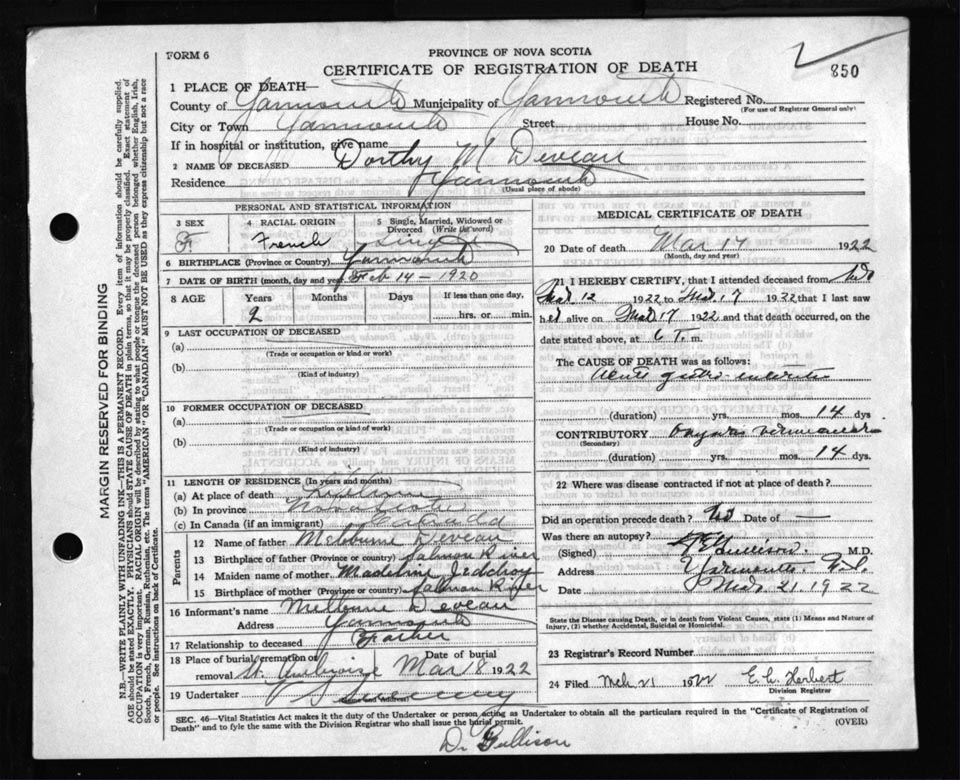 FORM 6
PROVINCE OF NOVA SCOTIA
CERTIFICATE OF REGISTRATION OF DEATH
850
1 PLACE OF DEATH—
County of Yarmouth Municipality of Yarmouth Registered No.
(For use of Registrar General only)
City or Town Yarmouth Street House No.
If in hospital or institution, give name
2 NAME OF DECEASED Dorthy M Deveau
Residence Yarmouth
(Usual place of abode)
PERSONAL AND STATISTICAL INFORMATION
3 SEX 4 RACIAL ORIGIN 5 Single, Married, Widowed or Divorced (Write the word)
F French Single
6 BIRTHPLACE (Province or Country) Yarmouth
7 DATE OF BIRTH (month, day and year) Feb 14 – 1920
8 AGE Years Months Days If less than one day,
2 hrs. or min.
9 LAST OCCUPATION OF DECEASED
(a)
(Trade or occupation or kind of work)
(b)
(Kind of industry)
10 FORMER OCCUPATION OF DECEASED
(a)
(Trade or occupation or kind of work)
(b)
(Kind of industry)
11 LENGTH OF RESIDENCE (In years and months)
(a) At place of death Lifetime
(b) In province Nova Scotia
(c) In Canada (if an immigrant) Canada
Parents
12 Name of father Melburne Deveau
13 Birthplace of father (Province or country) Salmon River
14 Maiden name of mother Madeline
15 Birthplace of mother (Province or country) Salmon River
16 Informant's name Melburne Deveau
Address Yarmouth
17 Relationship to deceased Father
18 Place of burial, cremation or removal St. Ambroise Date of burial Mar 18 1922
19 Undertaker Sweeny
(Name and Address)
MEDICAL CERTIFICATE OF DEATH
20 Date of death Mar 17 1922
(Month, day and year)
21 I HEREBY CERTIFY, that I attended deceased from
Mar 12 1922 to Mar. 17 1922 that I last saw
her alive on Mar 17 1922 and that death occurred, on
date stated above, at 6 m.
The CAUSE OF DEATH was as follows:
Acute gastro-enteritis
(duration) yrs. mos. 14 dys
CONTRIBUTORY
(Secondary)
(duration) yrs. mos. 14 dys.
22 Where was disease contracted if not at place of death?
Did an operation precede death? No Date of —
Was there an autopsy?
(Signed) M.D.
Address Yarmouth
Date Mar. 21. 1922
State the Disease Causing Death, or in death from Violent Causes, state (1) Means and Nature of Injury, (2) whether Accidental, Suicidal or Homicidal.
23 Registrar's Record Number
24 Filed Mch 21 1922 E. L. Herbert
Division Registrar
SEC. 46—Vital Statistics Act makes it the duty of the Undertaker or person acting as Undertaker to obtain all the particulars required in the "Certificate of Registration of
Death" and to file the same with the Division Registrar who shall issue the burial permit. (OVER)
Dr Gullison
MARGIN RESERVED FOR BINDING
N.B.—WRITE PLAINLY WITH UNFADING INK—THIS IS A PERMANENT RECORD. Every item of information should be carefully supplied.
AGE should be stated EXACTLY. PHYSICIANS should STATE CAUSE OF DEATH in plain terms, so that it may be properly classified. Exact statement of
OCCUPATION is very important. RACIAL ORIGIN will be described by stating to what people or tongue the deceased person belonged whether English, Irish,
Scotch, French, German, Russian, Ruthenian, etc. The terms "AMERICAN" OR "CANADIAN" MUST NOT BE USED as they express citizenship but not a race
or people. See instructions on back of Certificate.